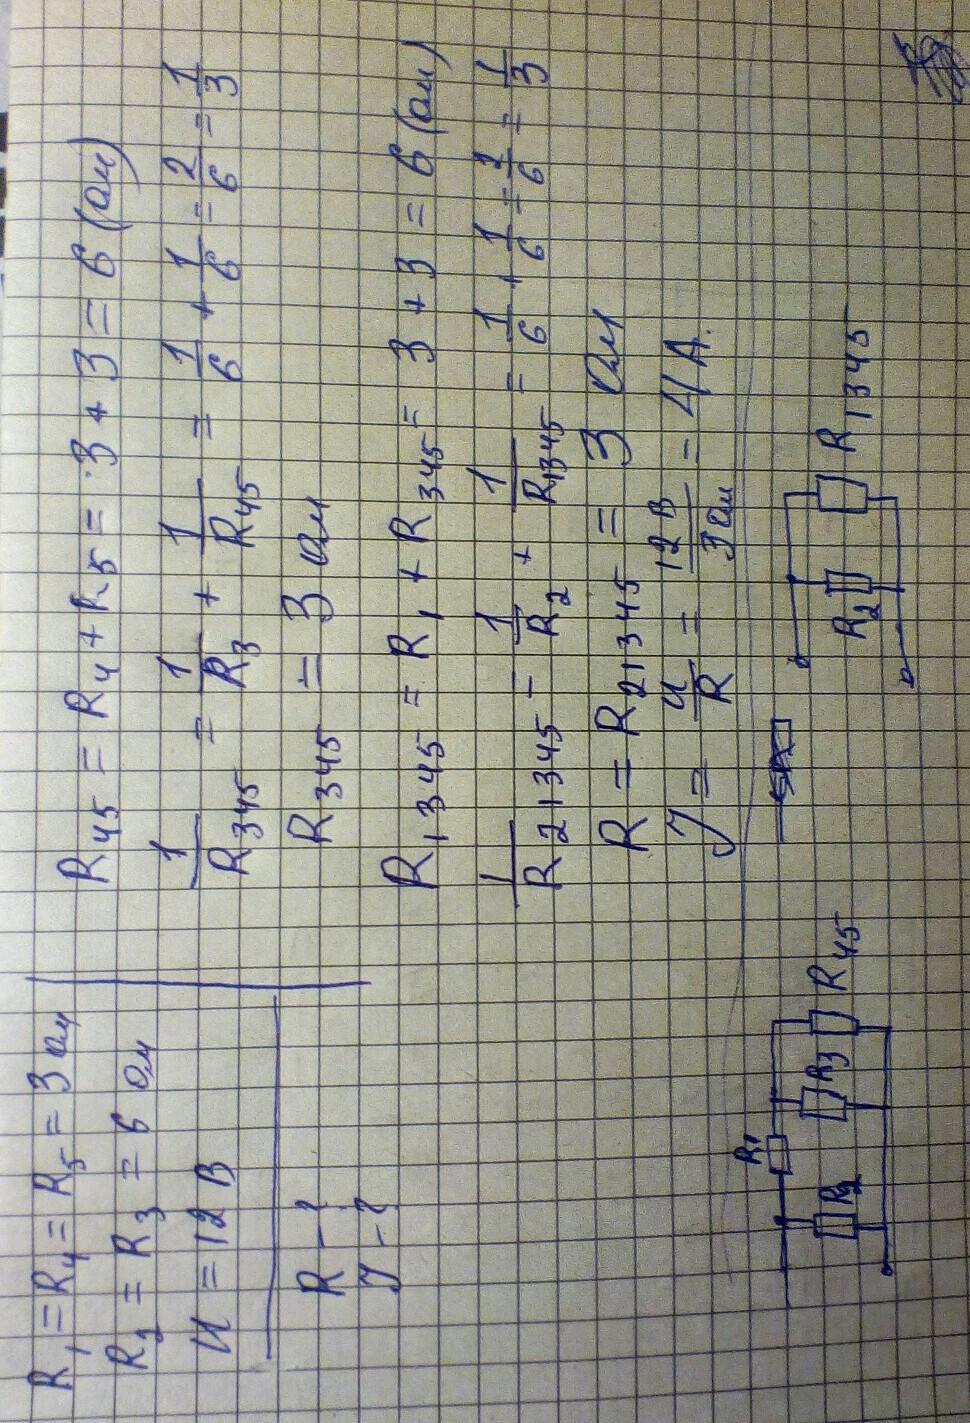 R₁ = R₄ = R₅ = 3 Ом
R₂ = R₃ = 6 Ом
U = 12 В
R - ?
У - ?
R₄₅ = R₄ + R₅ = 3 + 3 = 6 (ом)
1/R₃₄₅ = 1/R₃ + 1/R₄₅ = 1/6 + 1/6 = 2/6 = 1/3
R₃₄₅ = 3 Ом
R₁₃₄₅ = R₁ + R₃₄₅ = 3 + 3 = 6 (ом)
1/R₂₁₃₄₅ = 1/R₂ + 1/R₁₃₄₅ = 1/6 + 1/6 = 2/6 = 1/3
R = R₂₁₃₄₅ = 3 Ом
У = U/R = 12 В/3 Ом = 4 А.
R₁
R₂
R₃
R₄₅
R₂
R₁₃₄₅